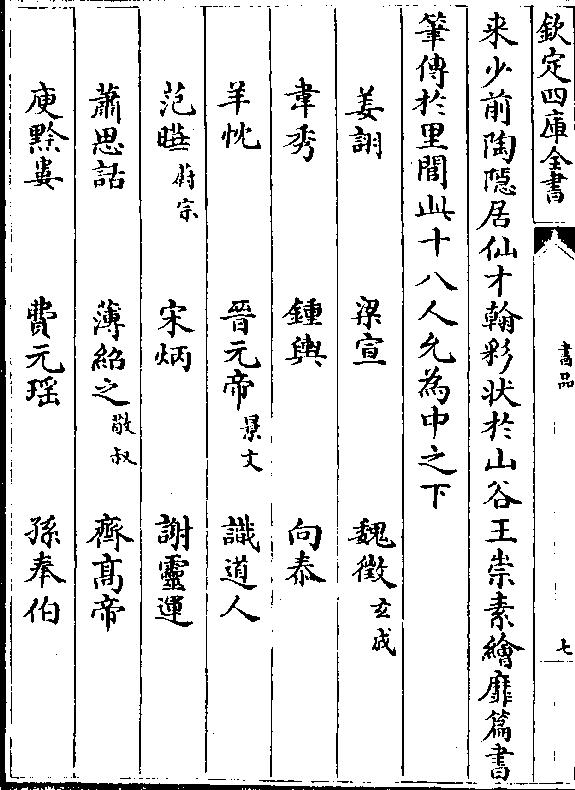 欽定四庫全書
書品
七
来少前陶隱居仙才翰彩状於山谷王崇素繪靡篇書
筆傳於里閭此十八人允為中之下
姜詡　梁宣　魏徴玄成
韋秀　鍾輿　向泰
羊忱　晉元帝景文　識道人
范曄蔚宗　宋炳　謝靈運
蕭思話　薄紹之敬叔　齊髙帝
庾黔婁　費元瑶　孫奉伯